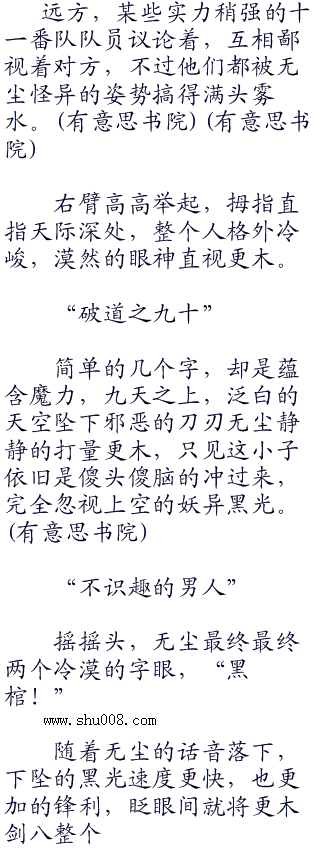 远方，某些实力稍强的十
一番队队员议论着，互相鄙
视着对方，不过他们都被无
尘怪异的姿势搞得满头雾
水。(有意思书院)(有意思书
院)
右臂高高举起，拇指直
指天际深处，整个人格外冷
峻，漠然的眼神直视更木。
“破道之九十”
简单的几个字，却是蕴
含魔力，九天之上，泛白的
天空坠下邪恶的刀刃无尘静
静的打量更木，只见这小子
依旧是傻头傻脑的冲过来，
完全忽视上空的妖异黑光。
(有意思书院)
“不识趣的男人”
摇摇头，无尘最终最终
两个冷漠的字眼，“黑
棺！”
www.shu008.com
随着无尘的话音落下，
下坠的黑光速度更快，也更
加的锋利，眨眼间就将更木
剑八整个